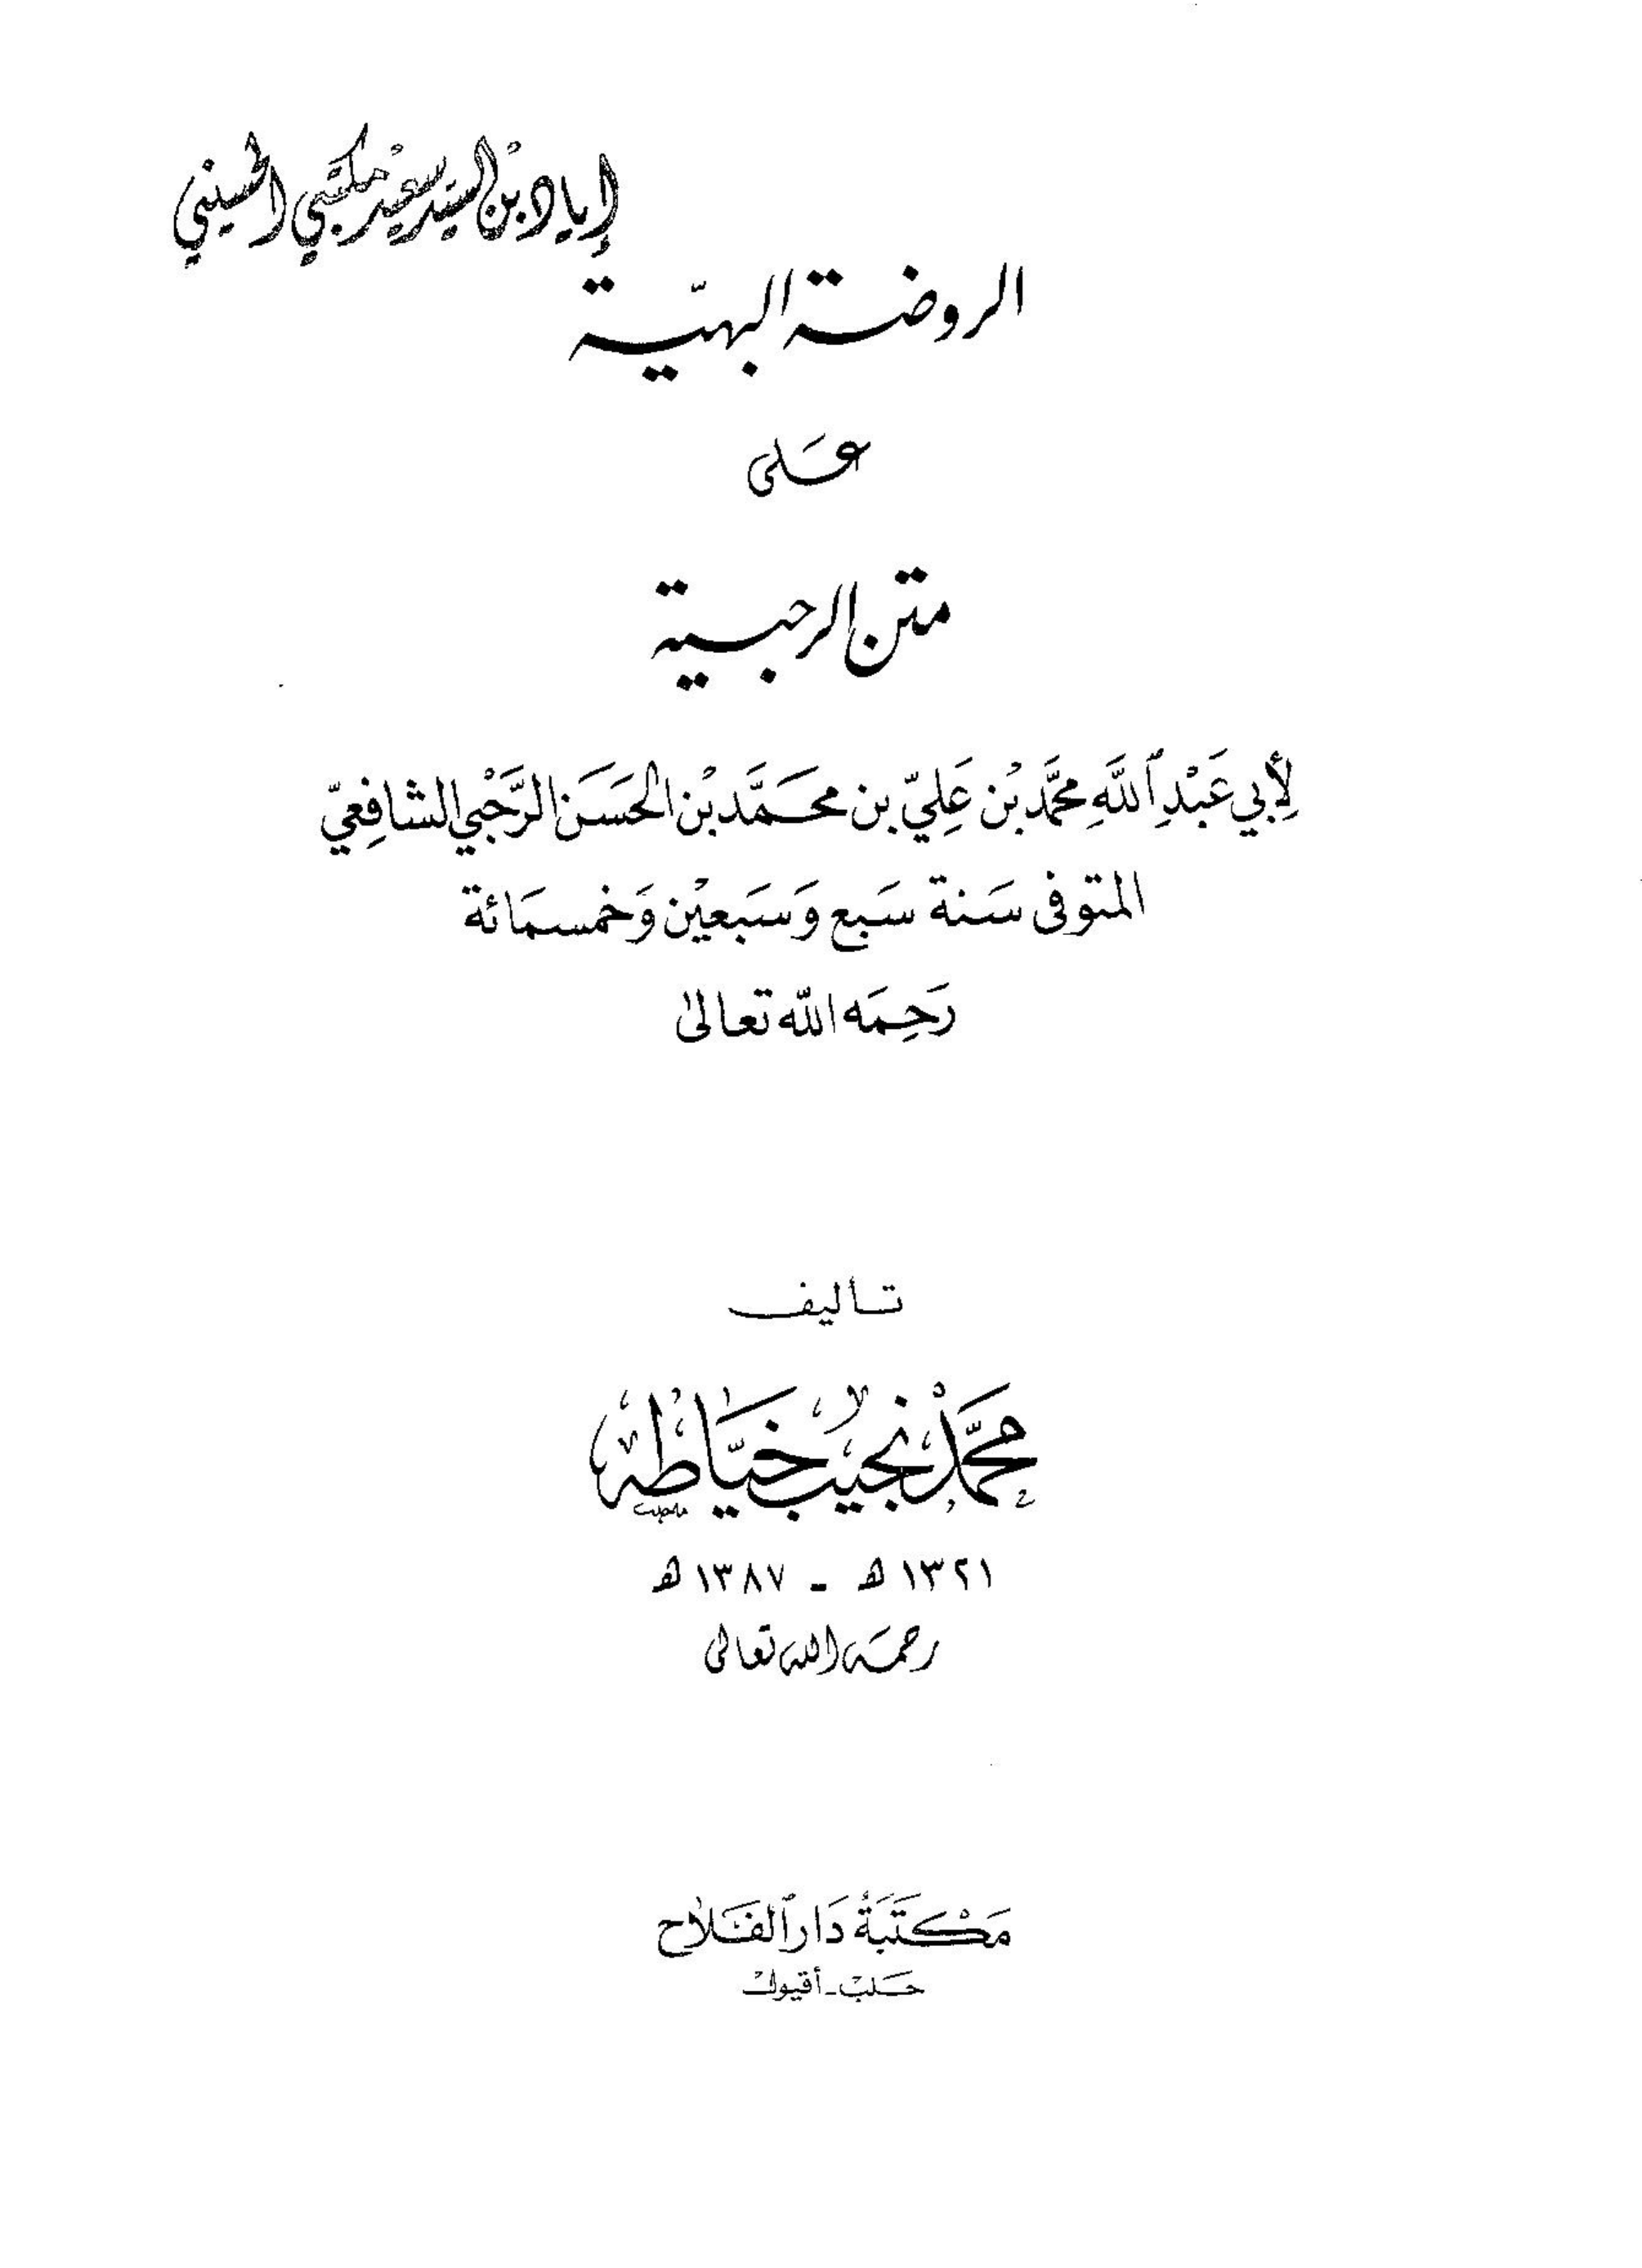 إياد بن السيد سعيد مكتبي الحسيني
الروضة البهيّة
عَلى
متن الرحبية
لِأَبي عَبْدِ ٱللَّهِ محمَّد بْن عَلِيّ بن محَمَّد بْن الحَسَن الرَّحْبي الشافِعيّ
المتوفى سَنة سَبع وَسَبعيْن وَخمسمَائة
رَحِمَه اللّه تعالىٰ
تأليف
محمَّد نجيب خيّاطه
١٣٢١ هـ - ١٣٨٧ هـ
رحمَه اللّه تعالى
مَكْتَبَةُ دَار ٱلفَلَاح
حَلبْ - أقيول